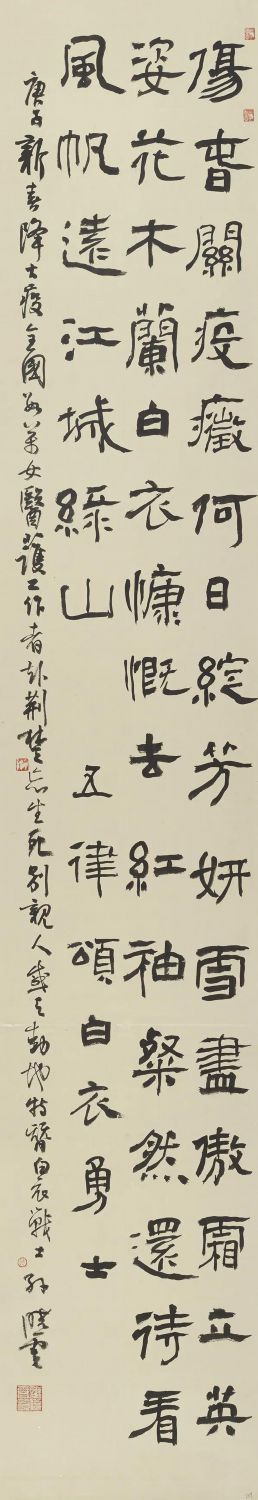 傷春關疫癥何日綻芳妍雪盡傲霜立英
姿花木蘭白衣慷慨去紅袖粲然還待看
風帆遠江城綠山 五律頌白衣勇士
庚子新春降大疫全國數萬女醫護工作者赴荊楚忘生死別親人感天動地特贊白衣戰士 孫曉雲